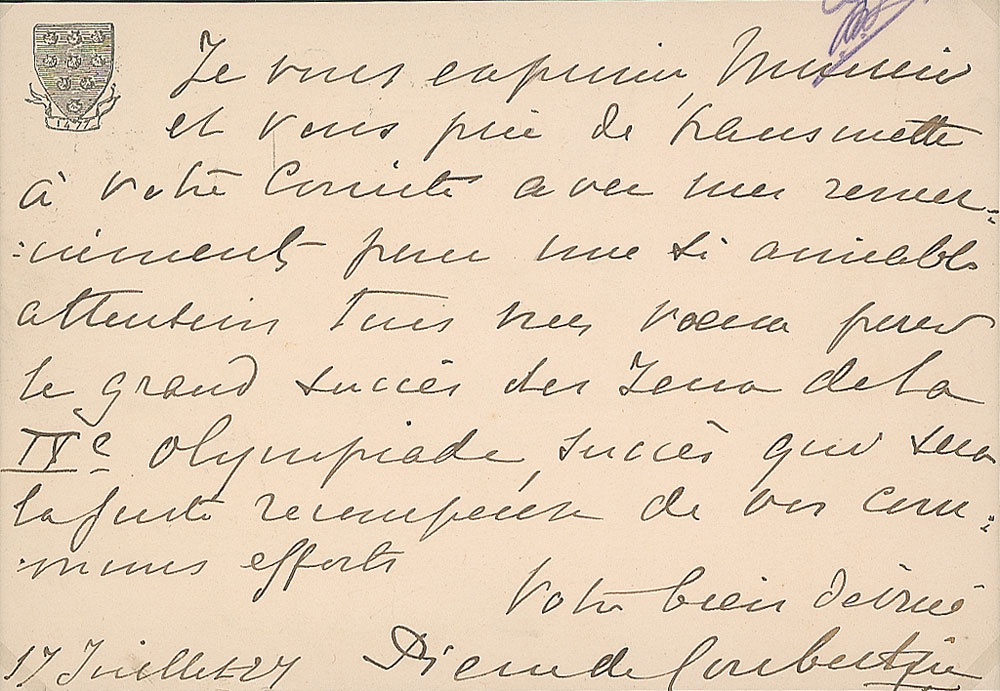 1477
Je vous exprime, Monsieur
et vous prie de transmettre
à votre Comité avec mes remer-
-ciements pour une si aimable
attention tous mes vœux pour
le grand succès des Jeux de la
IXe Olympiade, succès qui sera
la juste récompense de vos com-
-muns efforts
Votre bien dévoué
17 Juillet 27 Pierre de Coubertin